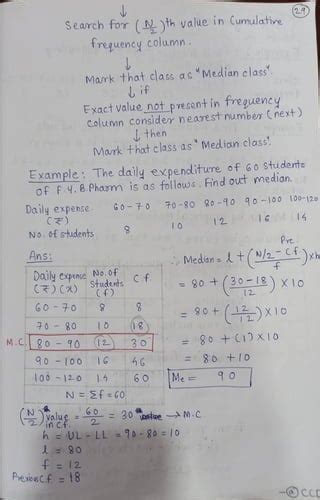 29
↓
Search for (N/2)th value in Cumulative
frequency column.
↓
Mark that class as "Median class".
↓ if
Exact value not present in frequency
column consider nearest number (next)
↓ then
Mark that class as "Median class".
Example: The daily expenditure of 60 students
of F.Y.B.Pharm is as follows. Find out median.
Daily expense (₹) 60-70 70-80 80-90 90-100 100-120
No. of students 8 10 12 16 14
Ans:
Daily Expense (₹) (x) No. of Students (f) C.f.
60-70 8 8
70-80 10 18
M.C. 80-90 12 30
90-100 16 46
100-120 14 60
N = Σf = 60
∴ Median = l + (N/2 - Pre C.f / f) × h
= 80 + (30-18 / 12) × 10
= 80 + (12/12) × 10
= 80 + (1) × 10
= 80 + 10
Me = 90
(N/2) value in C.f. = 60/2 = 30 → M.C
h = UL - LL = 90-80 = 10
l = 80
f = 12
Previous C.f = 18